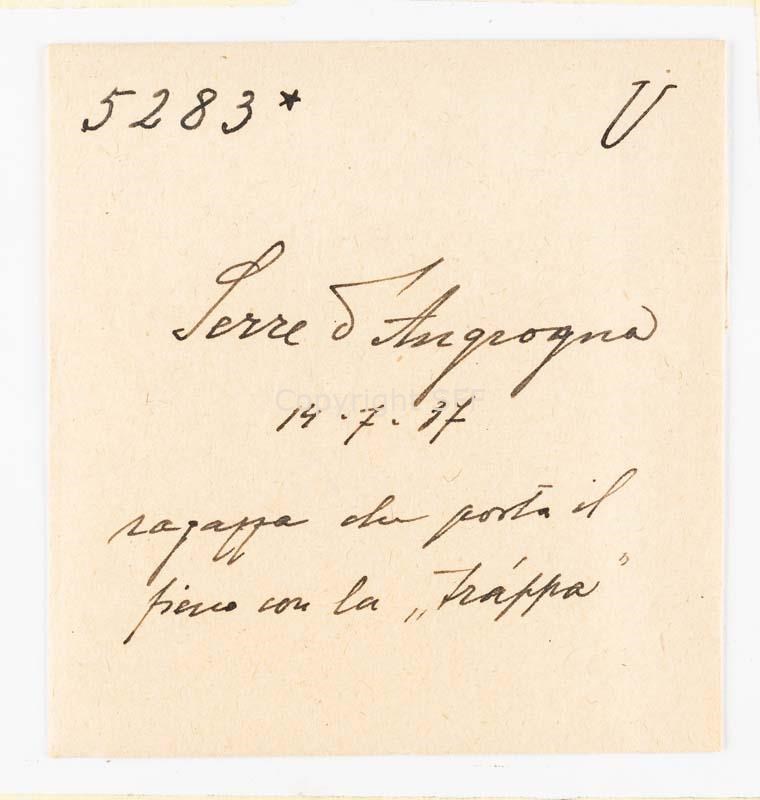 5283* V
Serre d'Angrogna
Copyright SEF
14.7.37
ragazza che porta il
fieno con la „tráppa”